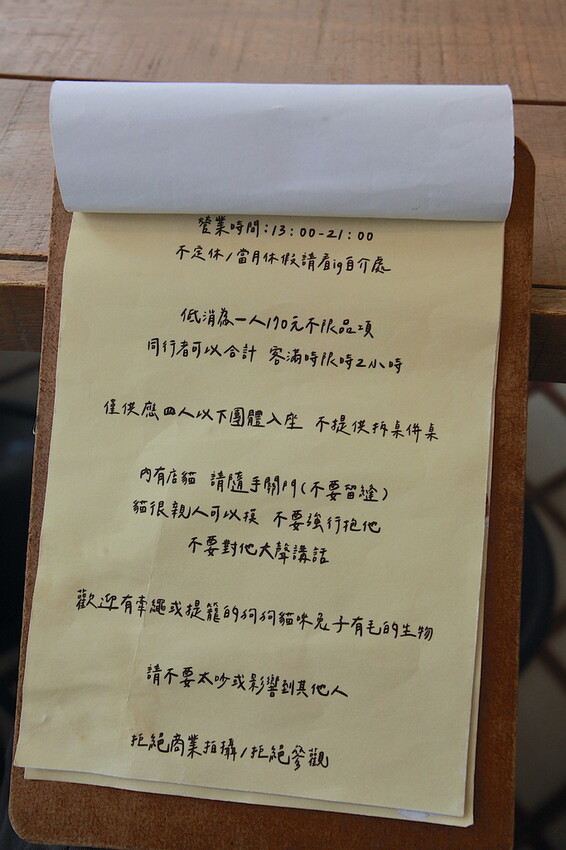 營業時間:13:00-21:00
不定休/當月休假請看ig自介處
低消為一人170元不限品項
同行者可以合計 客滿時限時2小時
僅供應四人以下團體入座 不提供拆桌併桌
內有店貓 請隨手關門(不要留縫)
貓很親人可以摸 不要強行抱他
不要對他大聲講話
歡迎有牽繩或提籠的狗狗貓咪兔子有毛的生物
請不要太吵或影響到其他人
拒絕商業拍攝/拒絕參觀